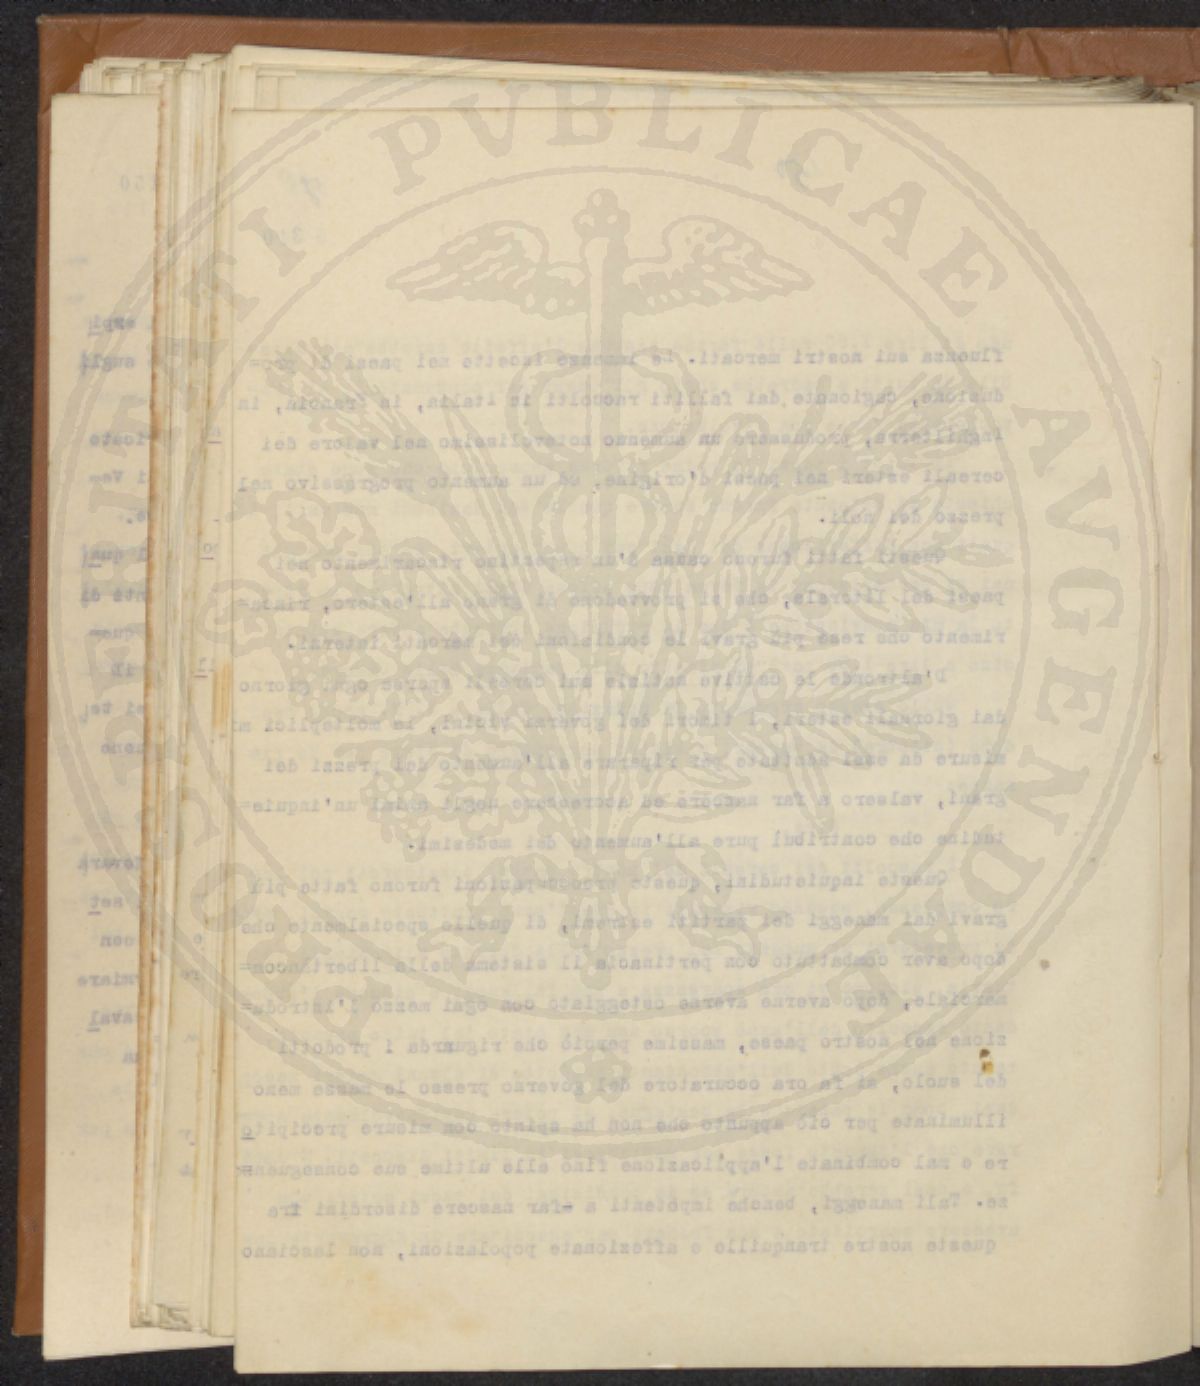 PROSPERITATI PVBLICAE AVGENDAE
fluenza sui nostri mercati. Le immense incette nei paesi di pro=
duzione, cagionate dai falliti raccolti in Italia, in Francia, in
Inghilterra, produssero un aumento notevolissimo nel valore dei
cereali esteri nei paesi d'origine, ed un aumento progressivo nel
prezzo dei noli.
Questi fatti furono causa d'un repentino rincarimento nei
paesi del litorale, che si provvedono di grano all'estero, rinca=
rimento che rese più gravi le condizioni dei mercati interni.
D'altronde le cattive notizie sui cereali sparse ogni giorno
dai giornali esteri, i timori dei governi vicini, le molteplici mi
misure da essi adottate per riparare all'aumento dei prezzi dei
grani, valsero a far nascere ed accrescere negli animi un'inquie=
tudine che contribuì pure all'aumento dei medesimi.
Queste inquietudini, queste preoccupazioni furono fatte più
gravi dai maneggi dei partiti estremi, di quello specialmente che
dopo aver combattuto con pertinacia il sistema della libertà com=
merciale, dopo averne osteggiato con ogni mezzo l'introdu=
zione nel nostro paese, massime perciò che riguarda i prodotti
del suolo, si fa ora accusatore del governo presso le masse meno
illuminate per ciò appunto che non ha spinto con misure precipito
re e mal combinate l'applicazione fino alle ultime sue conseguen=
ze. Tali maneggi, benchè impotenti a far nascere disordini fra
queste nostre tranquille e affezionate popolazioni, non lasciano